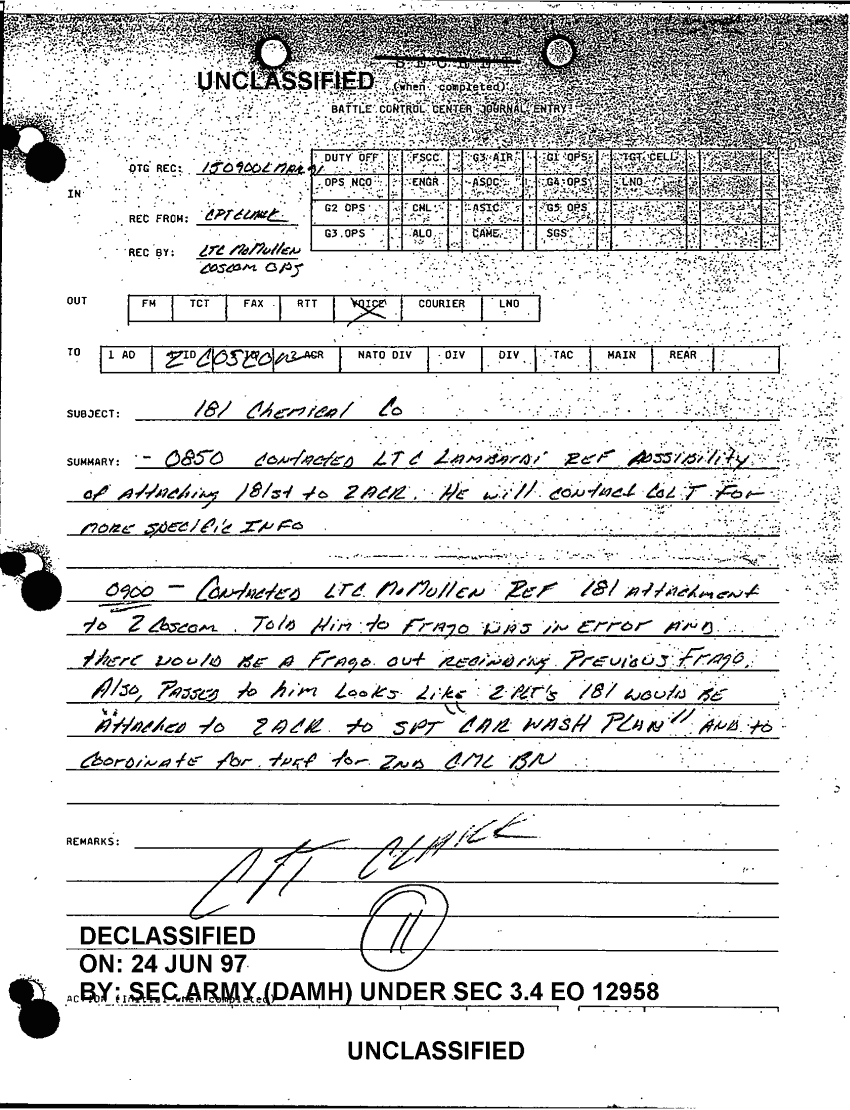 SECRET
UNCLASSIFIED (when completed)
BATTLE CONTROL CENTER JOURNAL ENTRY
DTG REC: 150900L MAR 91
DUTY OFF FSCC G3 AIR G1 OPS TGT CELL
IN
OPS NCO ENGR ASOC G4 OPS LNO
REC FROM: CPT CLARK
G2 OPS CML ASIC G5 OPS
G3 OPS ALO CAME SGS
REC BY: LTC McMullen
COSCOM OPS
OUT FM TCT FAX RTT VOICE COURIER LNO
TO 1 AD 2 COSCOM ACR NATO DIV DIV DIV TAC MAIN REAR
SUBJECT: 181 Chemical Co
SUMMARY: - 0850 CONTACTED LTC LAMBARDI REF POSSIBILITY
of ATTACHING 181st to 2ACR. HE will contact COL T FOR
MORE SPECIFIC INFO
0900 - CONTACTED LTC McMullEN REF 181 Attachment
to 2 COSCOM. Told Him to FRAGO WAS IN ERROR AND
there would BE A FRAGO out RECINDING PREVIOUS FRAGO.
Also, PASSED to him Looks Like 2 PLT's 181 would BE
Attached to 2ACR to SPT "CAR WASH PLAN" AND to
COORDINATE for turf for 2ND CML BN
REMARKS:
CPT CLARK
11
DECLASSIFIED
ON: 24 JUN 97
BY: SEC ARMY (DAMH) UNDER SEC 3.4 EO 12958
ACTION (Initial when completed)
UNCLASSIFIED